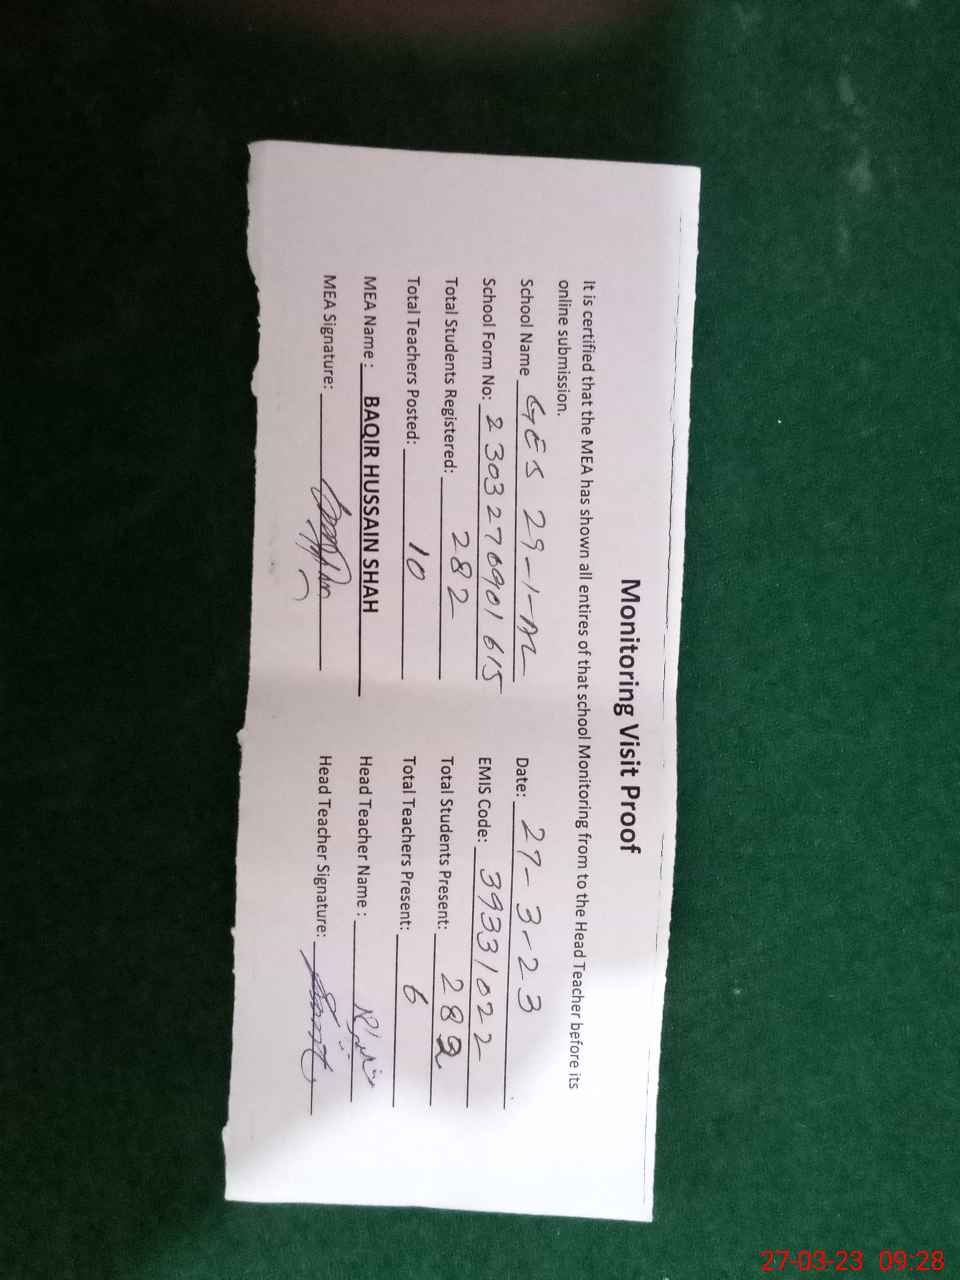 Monitoring Visit Proof
It is certified that the MEA has shown all entires of that school Monitoring from to the Head Teacher before its
online submission.
School Name GES 29-1-AL Date: 27-3-23
School Form No: 2303276901615 EMIS Code: 39331022
Total Students Registered: 282 Total Students Present: 282
Total Teachers Posted: 10 Total Teachers Present: 6
MEA Name: BAQIR HUSSAIN SHAH Head Teacher Name :
MEA Signature: Head Teacher Signature:
27-03-23 09:28